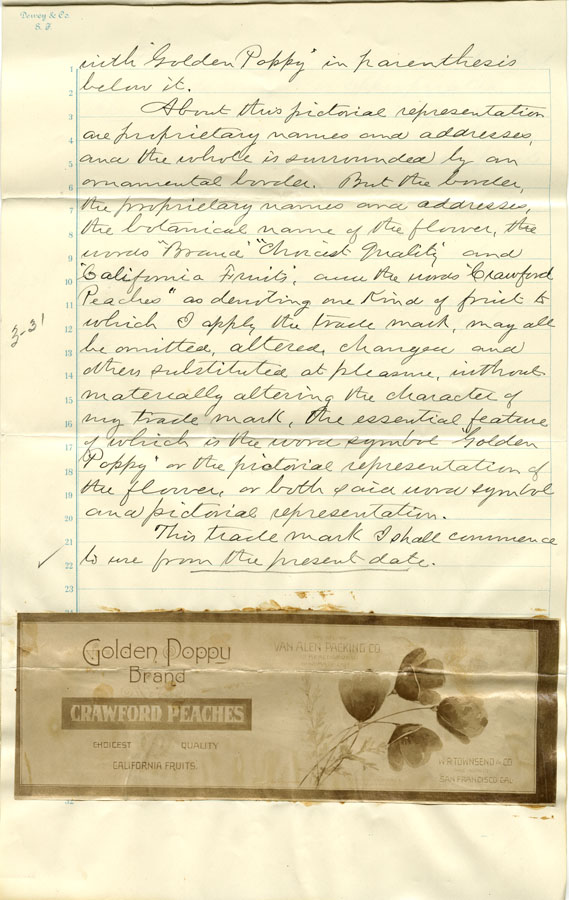 Dewey & Co.
S. F.
with "Golden Poppy" in parenthesis
below it.
About this pictorial representation
are proprietary names and addresses,
and the whole is surrounded by an
ornamental border. But the border,
the proprietary names and addresses,
the botanical name of the flower, the
words "Brand" "Choicest Quality" and
"California Fruits", and the words "Crawford
Peaches" as denoting one kind of fruit to
which I apply the trade mark, may all
be omitted, altered, changed and
others substituted at pleasure, without
materially altering the character of
my trade mark, the essential feature
of which is the word symbol "Golden
Poppy" or the pictorial representation of
the flower, or both said word symbol
and pictorial representation.
This trade mark I shall commence
to use from the present date.
1
2
3
4
5
6
7
8
9
10
11
12
13
14
15
16
17
18
19
20
21
22
23
32
3-31
Golden Poppy
Brand
CRAWFORD PEACHES
CHOICEST QUALITY
CALIFORNIA FRUITS.
VAN ALEN PACKING CO.
W.R. TOWNSEND & CO.
SAN FRANCISCO CAL.